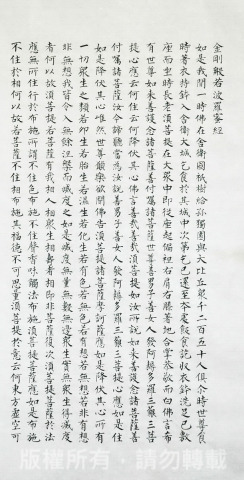 金剛般若波羅蜜經
如是我聞一時佛在舍衛國祇樹給孤獨園與大比丘眾千二百五十人俱爾時世尊食
時著衣持鉢入舍衛大城乞食於其城中次第乞已還至本處飯食訖收衣鉢洗足已敷
座而坐時長老須菩提在大眾中即從座起偏袒右肩右膝著地合掌恭敬而白佛言希
有世尊如來善護念諸菩薩善付囑諸菩薩世尊善男子善女人發阿耨多羅三藐三菩
提心應云何住云何降伏其心佛言善哉善哉須菩提如汝所說如來善護念諸菩薩善
付囑諸菩薩汝今諦聽當為汝說善男子善女人發阿耨多羅三藐三菩提心應如是住
如是降伏其心唯然世尊願樂欲聞佛告須菩提諸菩薩摩訶薩應如是降伏其心所有
一切眾生之類若卵生若胎生若濕生若化生若有色若無色若有想若無想若非有想
非無想我皆令入無餘涅槃而滅度之如是滅度無量無數無邊眾生實無眾生得滅度
者何以故須菩提若菩薩有我相人相眾生相壽者相即非菩薩復次須菩提菩薩於法
應無所住行於布施所謂不住色布施不住聲香味觸法布施須菩提菩薩應如是布施
不住於相何以故若菩薩不住相布施其福德不可思量須菩提於意云何東方虛空可
版權所有 請勿轉載